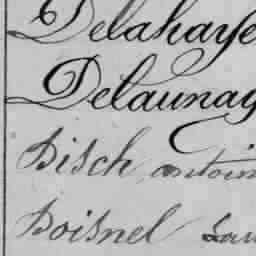 Delahaye
Delaunay
Bisch antoin
Boisnel Lau